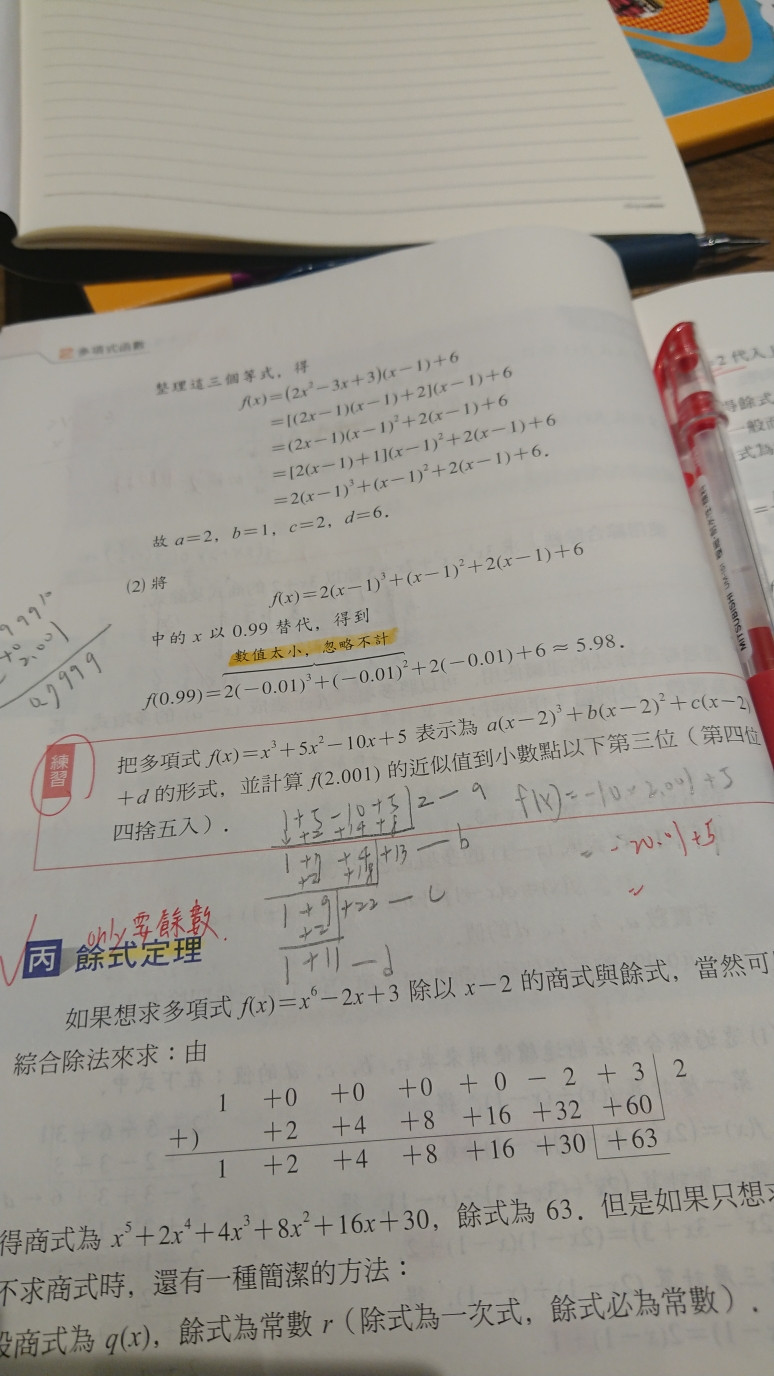 多項式函數
整理這三個等式，得
f(x)=(2x²−3x+3)(x−1)+6
=[(2x−1)(x−1)+2](x−1)+6
=(2x−1)(x−1)²+2(x−1)+6
=[2(x−1)+1](x−1)²+2(x−1)+6
=2(x−1)³+(x−1)²+2(x−1)+6．
故 a=2，b=1，c=2，d=6．
(2) 將
f(x)=2(x−1)³+(x−1)²+2(x−1)+6
中的 x 以 0.99 替代，得到
數值太小，忽略不計
f(0.99)=2(−0.01)³+(−0.01)²+2(−0.01)+6≈5.98．
練習
把多項式 f(x)=x³+5x²−10x+5 表示為 a(x−2)³+b(x−2)²+c(x−2)
+d 的形式，並計算 f(2.001) 的近似值到小數點以下第三位（第四位
四捨五入）．
1+5−10+5 2 — a
+2 +14 +8
1+7 +4 +13 — b
+2 +18
1+9 +22 — c
+2
1+11 — d
f(x)=−10×2.001+5
=−20.01+5
=
only要餘數．
丙 餘式定理
如果想求多項式 f(x)=x⁶−2x+3 除以 x−2 的商式與餘式，當然可
綜合除法來求：由
1 +0 +0 +0 +0 −2 +3 2
+) +2 +4 +8 +16 +32 +60
1 +2 +4 +8 +16 +30 +63
得商式為 x⁵+2x⁴+4x³+8x²+16x+30，餘式為 63．但是如果只想
不求商式時，還有一種簡潔的方法：
設商式為 q(x)，餘式為常數 r（除式為一次式，餘式必為常數）．
2 代入
得餘式
一般
式為
MITSUBISHI